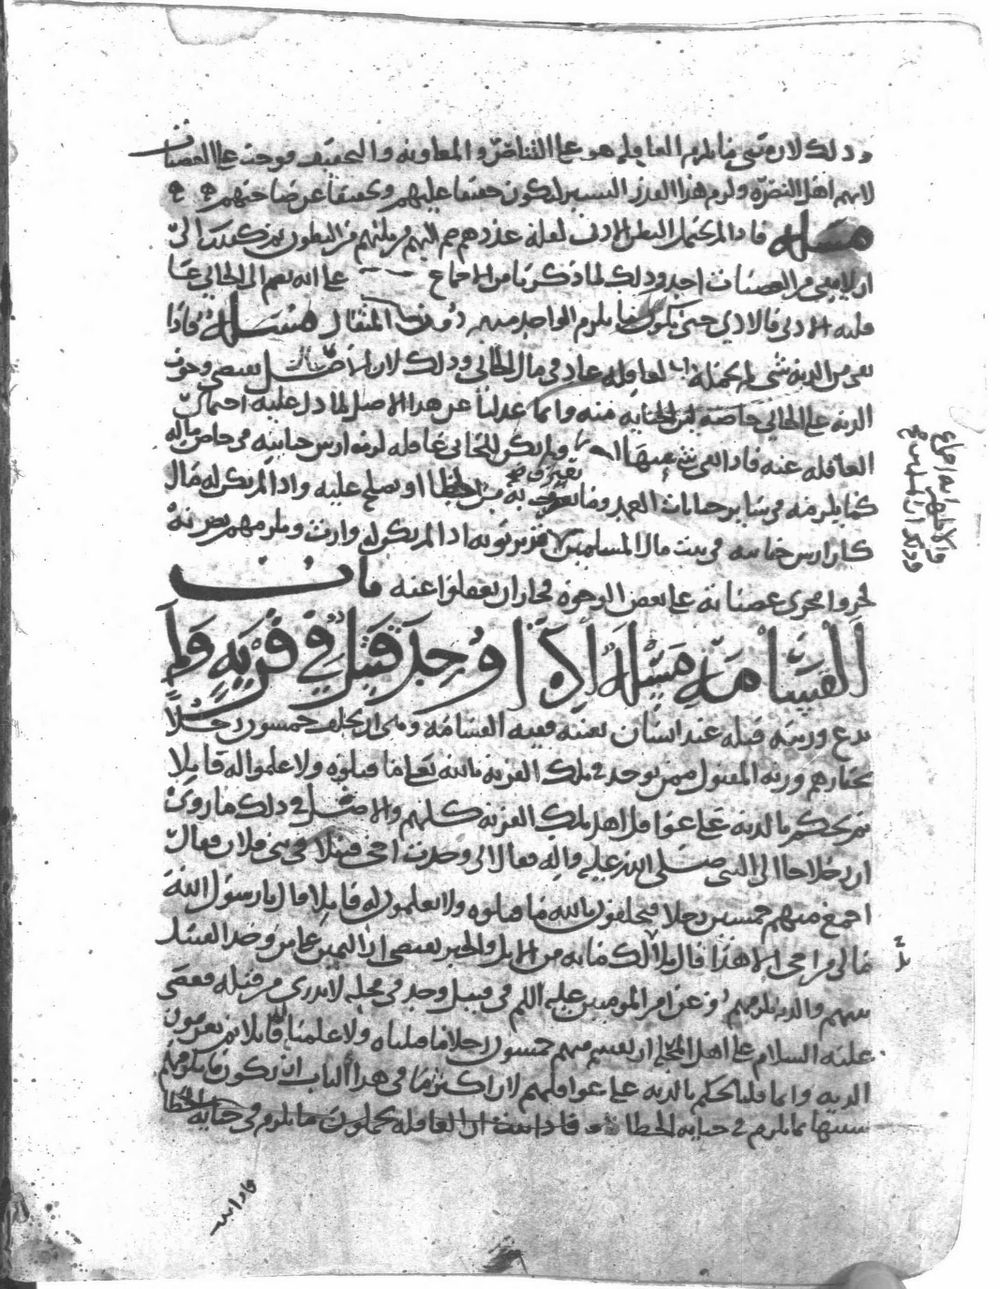 وذلك لان تحمل العاقلة هو على التناصر والمعاونة والتخفيف فوجب على العصبات
لانهم اهل النصرة ولزم هذا القدر اليسير ليكون خفيفا عليهم وتخفيفا عن صاحبهم
مسئلة فاذا لم يحتمل البطن الادنى لقلة عددهم ضم اليهم من يليهم من البطون ثم كذلك الى
ان لا يبقى من العصبات احد وذلك لما ذكرنا من الاجماع على انه يضم الى الجاني
قبله الادنى فالادنى حتى يكون ما يلزم الواحد منهم دون المثقال مسئلة فاذا
بقي من الدية شي لم تحمله العاقلة عاد في مال الجاني وذلك لان الاصل يقتضي وجوب
الدية على الجاني خاصة لان الجناية منه وانما عدلنا عن هذا الاصل لما دل عليه احتمال
العاقلة عنه فاذا بقي شي ولم يكن للجاني عاقلة لزمه ارش جنايته من خاص ماله
كما يلزمه في سائر جنايات العمد وما يعترف به من الخطا او يصلح عليه واذا لم يكن له مال
كان ارش جنايته في بيت مال المسلمين لانهم يرثونه اذا لم يكن له وارث
اجروا مجرى عصباته على بعض الوجوه فجاز ان يعقلوا عنه باب
القسامة مسئلة اذا وجد قتيل في قرية ولم
يدع ورثته قتله عند انسان بعينه ففيه القسامة وهي ان يحلف خمسون رجلا
يختارهم ورثة المقتول ممن يوجد في تلك القرية بالله تعالى ما قتلوه ولا علموا له قاتلا
ثم يحكم بالدية على عواقل اهل تلك القرية كلهم والاصل في ذلك ما روي
ان رجلا جا الى النبي صلى الله عليه واله فقال اني وجدت اخي قتيلا في بني فلان فقال
اجمع منهم خمسين رجلا فيحلفون بالله ما قتلوه ولا يعلمون له قاتلا قال يا رسول الله
مالي من اخي الا هذا قال بلا لك مائة من الابل والخبر يقتضي ان اليمين على من وجد القتيل
بينهم والدية تلزمهم وعن امير المومنين عليه السلم في قتيل وجد في محلة لا يدرى من قتله فقضى
عليه السلام على اهل المحلة ان يقسم منهم خمسون رجلا ما قتلناه ولا علمنا له قاتلا ثم يغرمون
الدية وانما قلنا يحكم بالدية على عواقلهم لان اكثر ما في هذا الباب ان يكون ما يلزمهم
سبيلها ما يلزم في جناية الخطا فاذا ثبت ان العاقلة يحملون ما يلزم في جناية الخطا
فاذا ثبت